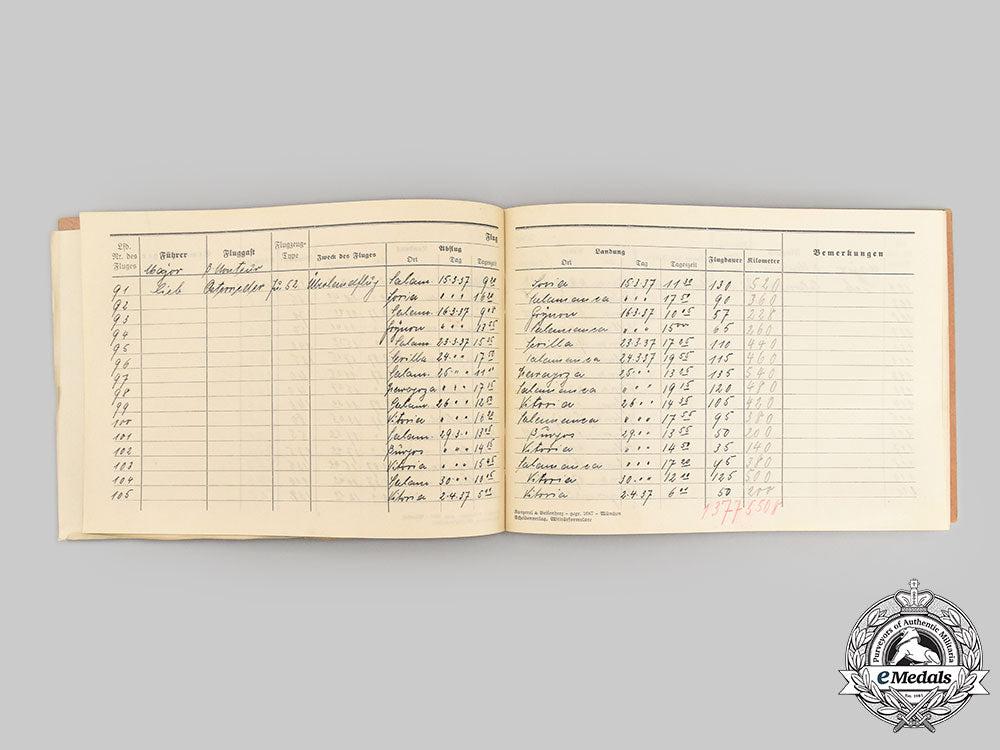 Flug
Lfd. Nr. des Fluges Führer Fluggast Flugzeug-Type Zweck des Fluges Abflug Landung Flugdauer Kilometer Bemerkungen
Ort Tag Tageszeit Ort Tag Tageszeit
Major
91 Lieb Ju 52 Überlandflug Salam. 15.3.37 9 20 Soria 15.3.37 11 30 130 520
92 Soria " " " 16 20 Salamanca " " " 17 50 90 360
93 Salam. 16.3.37 9 08 16.3.37 10 05 57 228
94 " " " 13 55 Salamanca " " " 15 00 65 260
95 Salam. 23.3.37 15 15 Sevilla 23.3.37 17 05 110 440
96 Sevilla 24. " " 17 50 Salamanca 24.3.37 19 55 115 460
97 Salam. 25. " " 25. " " 13 25 135 540
98 " " " 17 15 Salamanca " " " 19 15 120 480
99 Salam. 26 " " 12 50 Vitoria 26 " " 14 35 105 420
100 Vitoria " " " 16 20 Salamanca " " " 17 55 95 380
101 Salam. 29.3 " 13 05 Burgos 29 " " 13 55 50 200
102 Burgos " " " 14 15 Vitoria " " " 14 50 35 140
103 Vitoria " " " 15 45 Salamanca " " " 17 20 95 380
104 Salam. 30 " " 10 05 Vitoria 30 " " 12 10 125 500
105 Vitoria 2.4.37 5 10 Vitoria 2.4.37 6 00 50 200
1377 5508
München
Purveyors of Authentic Militaria
eMedals